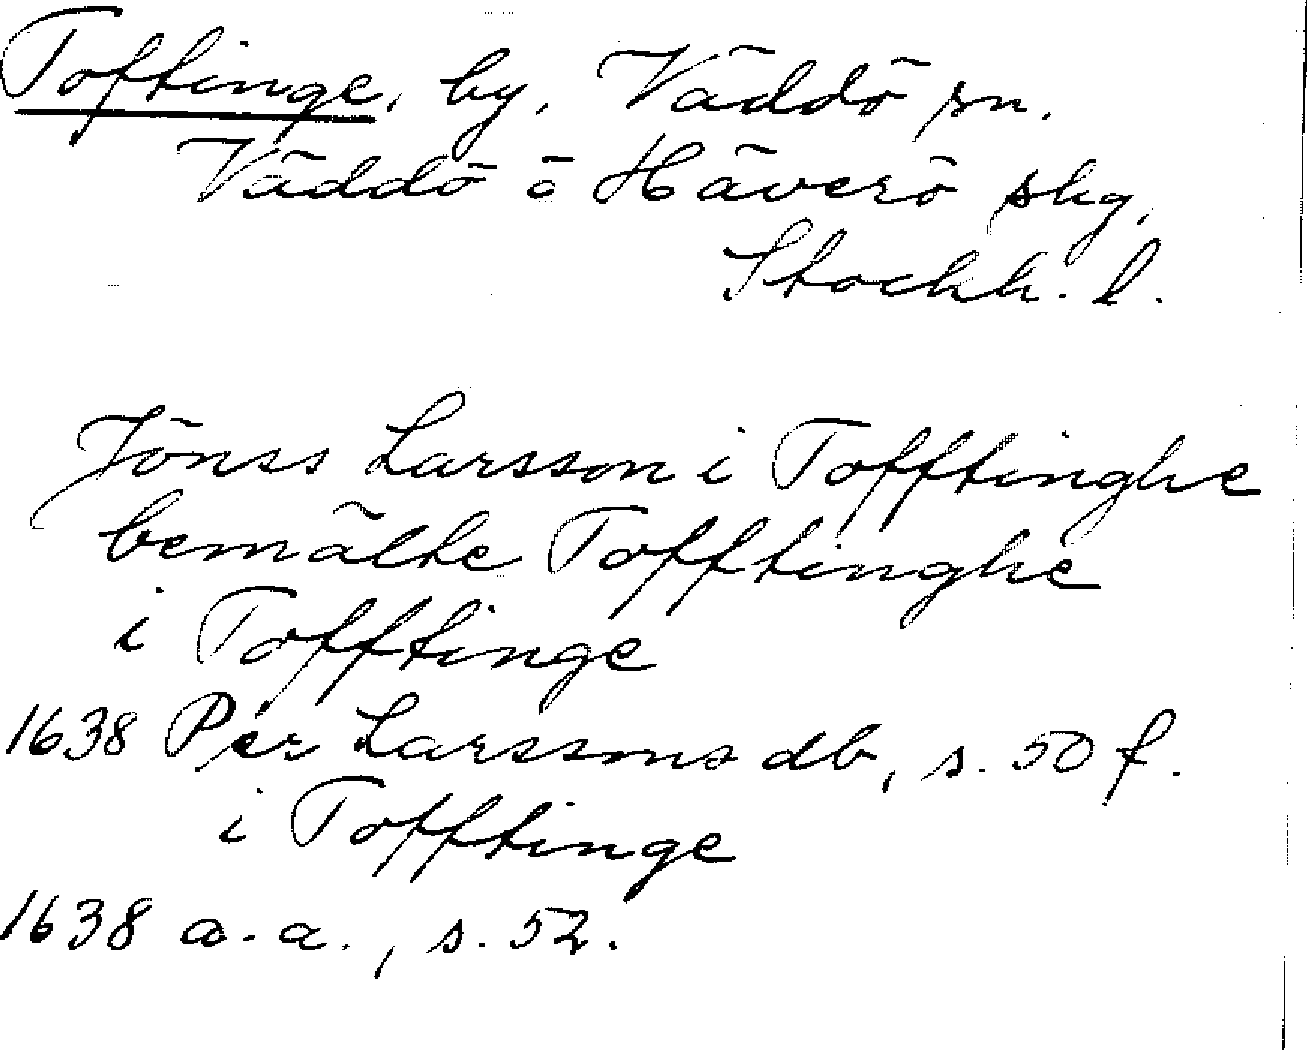 Toftinge, by, Väddö sn.
Väddö o Häverö skg,
Stockh. l.
Jönss Larsson i Tofftinghe
bemälte Tofftinghe
i Tofftinge
1638 Per Larssons db, s. 50 f.
i Tofftinge
1638 a.a., s. 52.